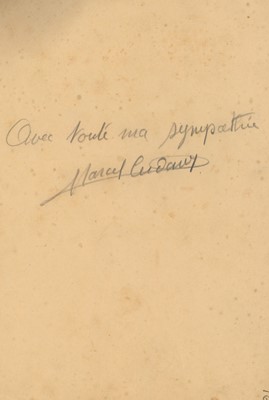 Avec toute ma sympathie
Marcel Cerdan